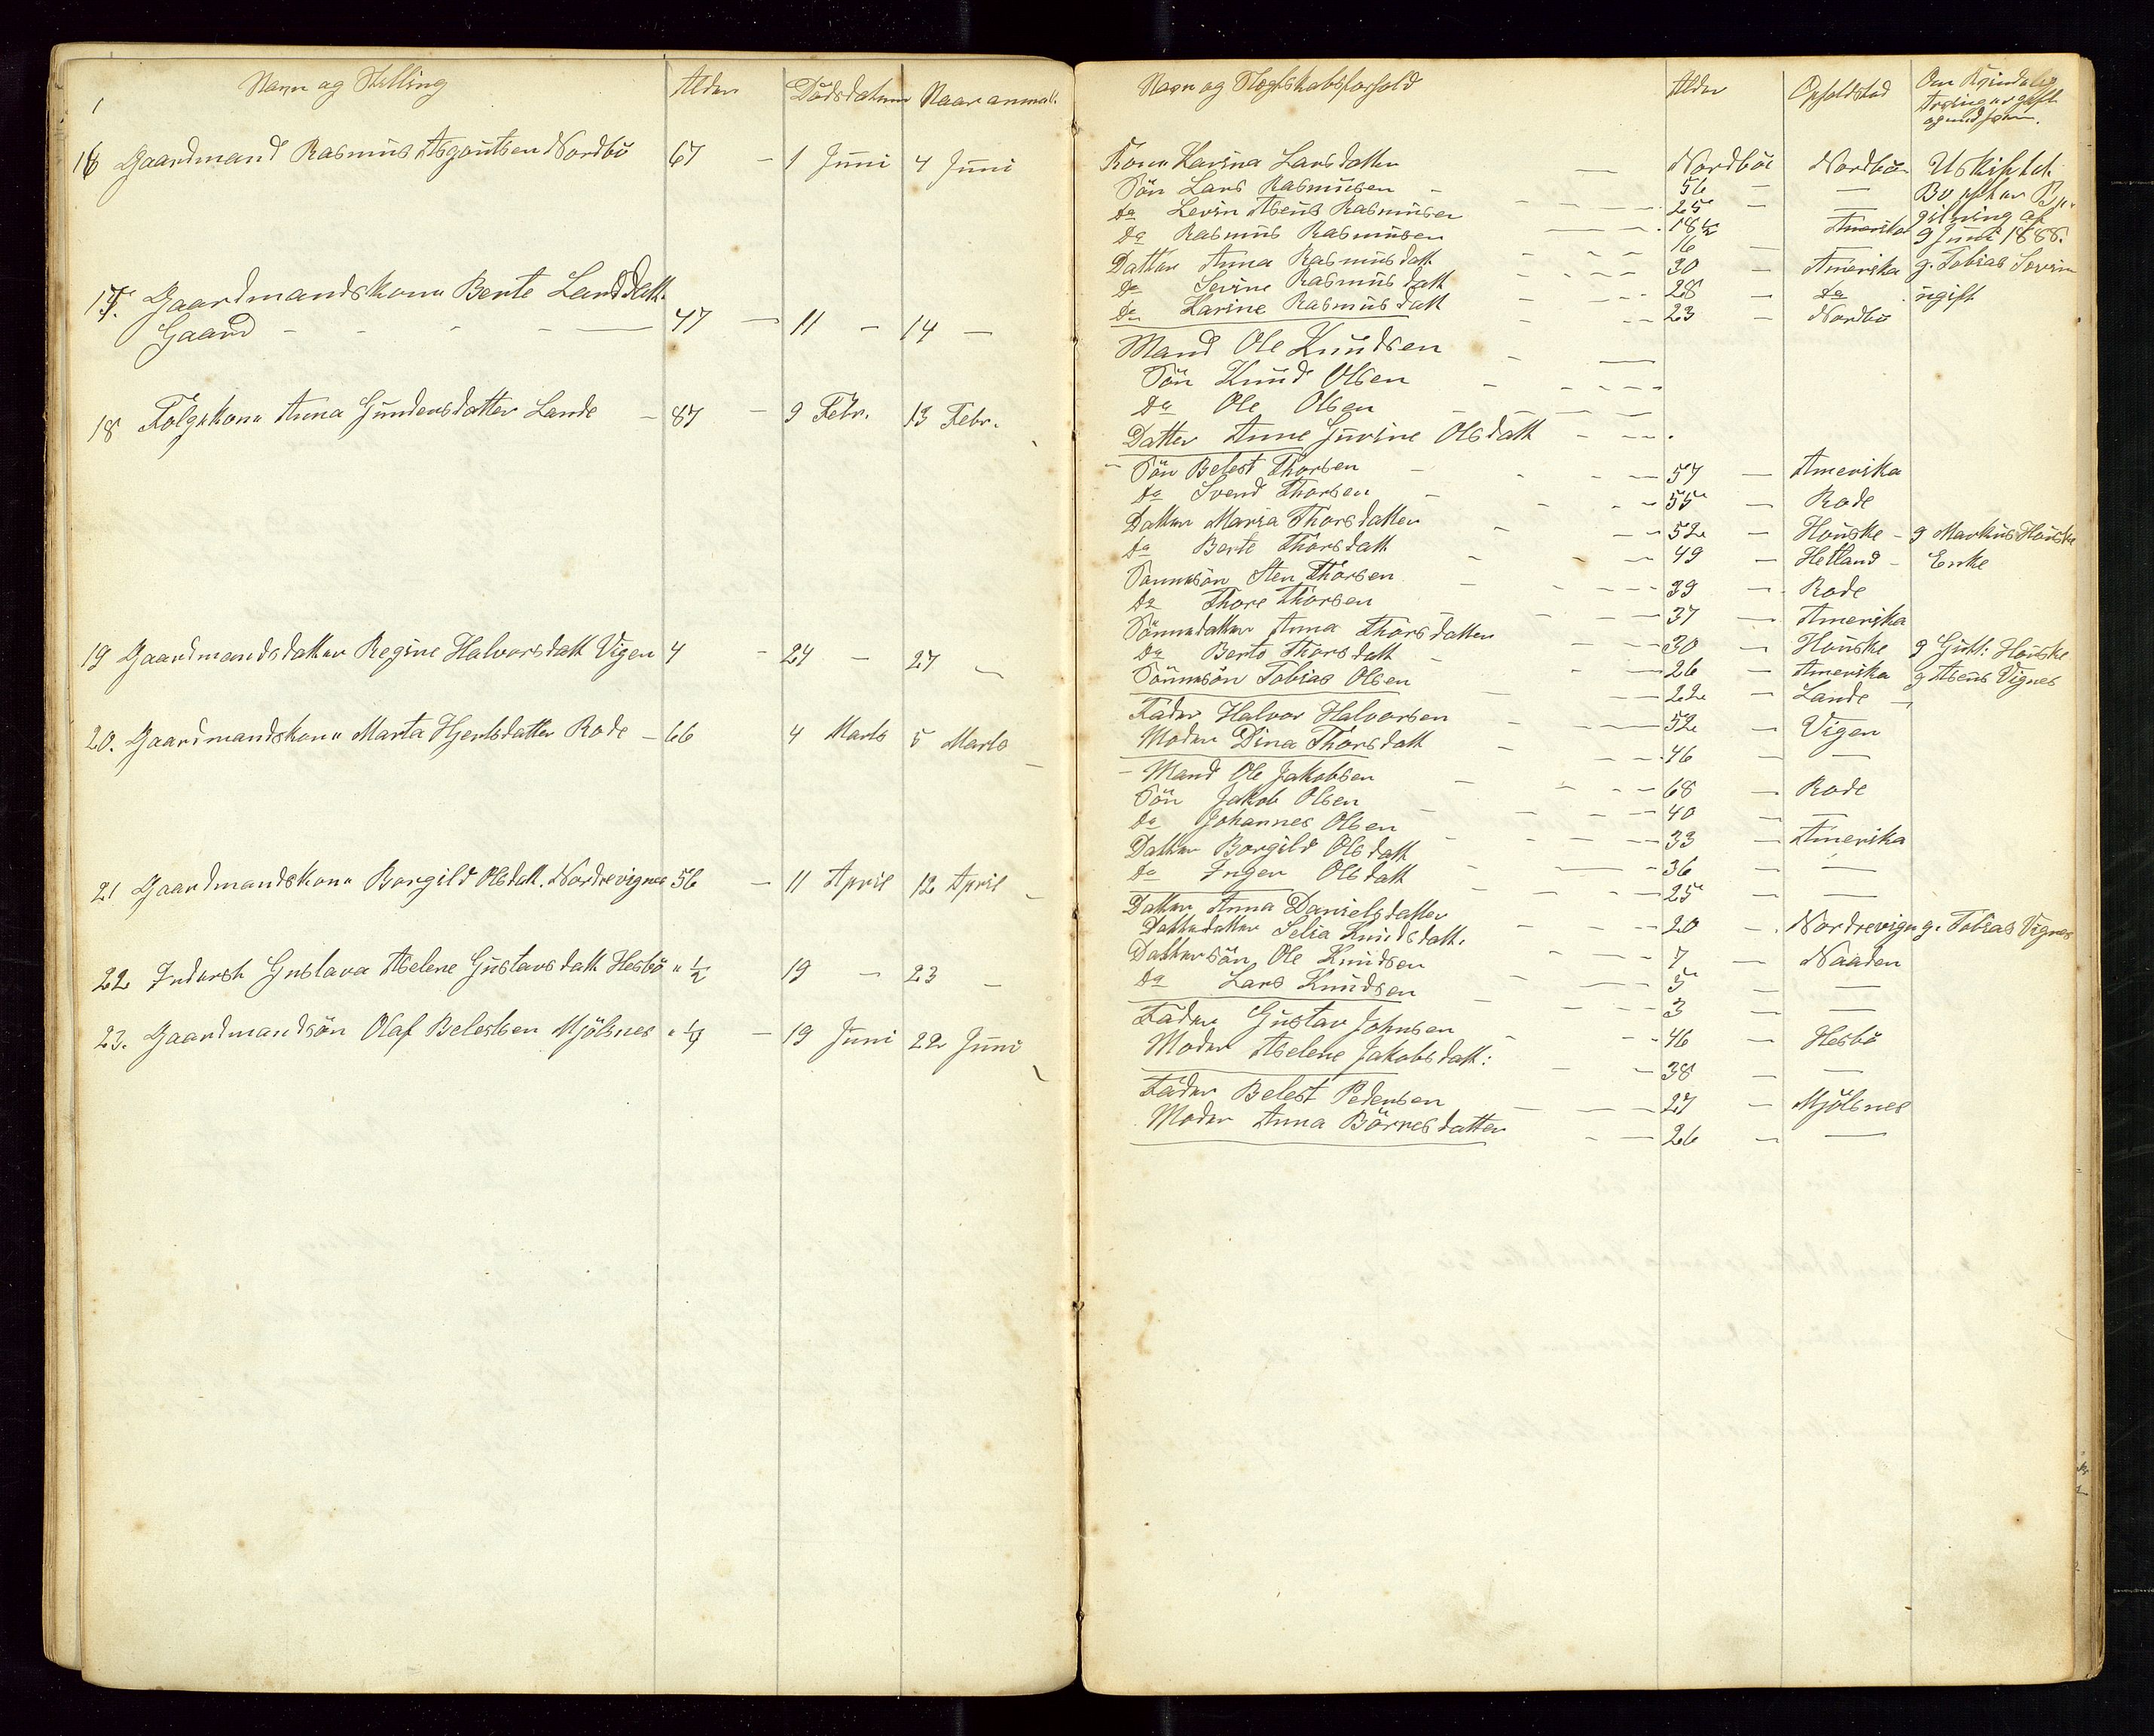 Navn og Stilling Alder Dödsdatum Naar anmeldt
16 Gaardmand Rasmus Asgautsen Nordbö 67 - 1 Juni 4 Juni
17. Gaardmandskone Berte Larsdatt.
Gaard - - - - 47 - 11 - 14 -
18 Folgekone Anna Gundersdatter Lande - 87 - 9 Febr. 13 Febr.
19 Gaardmandsdatter Regine Halvorsdatt Vigen 4 - 24 - 27 -
20. Gaardmandskone Marta Hjertsdatter Rode - 66 4 Marts 5 Marts
21 Gaardmandskone Borgild Olsdatt. Nordrevignes 56 - 11 April 12 April
22 Inderst Gustava Aselene Gustavsdatt Hesbö " 1/2 19 - 23 -
23. Gaardmandsön Olaf Belestsen Mjölsnes " 1/4 - 19 Juni 22 Juni
Navn og Slægtskabsforhold Alder Opholdsted Om Kvindelig
Arving er gift
og med hvem.
Kone Karina Larsdatter - Nordböe Nordböe Uskiftet
Sön Lars Rasmusen - 56 - - Bo efter Be-
do Levin Aseus Rasmusen - - - 25 - - gilning af
do Rasmus Rasmusen - - 18 1/2 Amerika 9 Juni 1888.
Datter Anna Rasmusdatt - - - 16
do Sevine Rasmusdatt - - - 30 - Amerika g. Tobias Sevrin
do Karine Rasmusdatt - - - 28 - do ugift
23 - Nordbö
Mand Ole Knudsen - -
Sön Knud Olsen - - - -
do Ole Olsen - - -
Datter Anne Gurine Olsdatt - - -
- Sön Belest Thorsen - - - 57 - Amerika
do Svend Thorsen - - - 55 - Rode
Datter Maria Thorsdatter - - - 52 - Houske - g Markus Houske
do Berte Thorsdatt - - - 49 - Hetland - Enke
Sönnesön Sten Thorsen - - - 39 - Rode
do Thore Thorsen - - - 37 - Amerika
Sönnedatter Anna Thorsdatter - - 30 - Houske g Gutt: Houske
do Berte Thorsdatt - - - 26 - Amerika g Aseus Vignes
Sönnesön Tobias Olsen - - 22 - Lande -
Fader Halvor Halvorsen - - - 52 - Vigen
Moder Dina Thorsdatt - - - 46 - -
- Mand Ole Jakobsen - - - 68 - Rode
Sön Jakob Olsen - - - 40 - -
do Johannes Olsen - - - 33 - Amerika
Datter Borgild Olsdatt - - - 36 - -
do Inger Olsdatt - - - 25 - -
Datter Anna Danielsdatter - - - 20 - Nordrevigen g. Tobias Vignes
Datterdatter Selia Knudsdatt. - - 7 - Naaden
Dattersön Ole Knudsen - - - 5 - -
do Lars Knudsen - - - 3 - -
Fader Gustav Johnsen - - - 46 - Hesbö
Moder Aselene Jakobsdatt: - - 38 - -
Fader Belest Pedersen - - - 27 - Mjölsnes
Moder Anna Börresdatter - - 26 - -